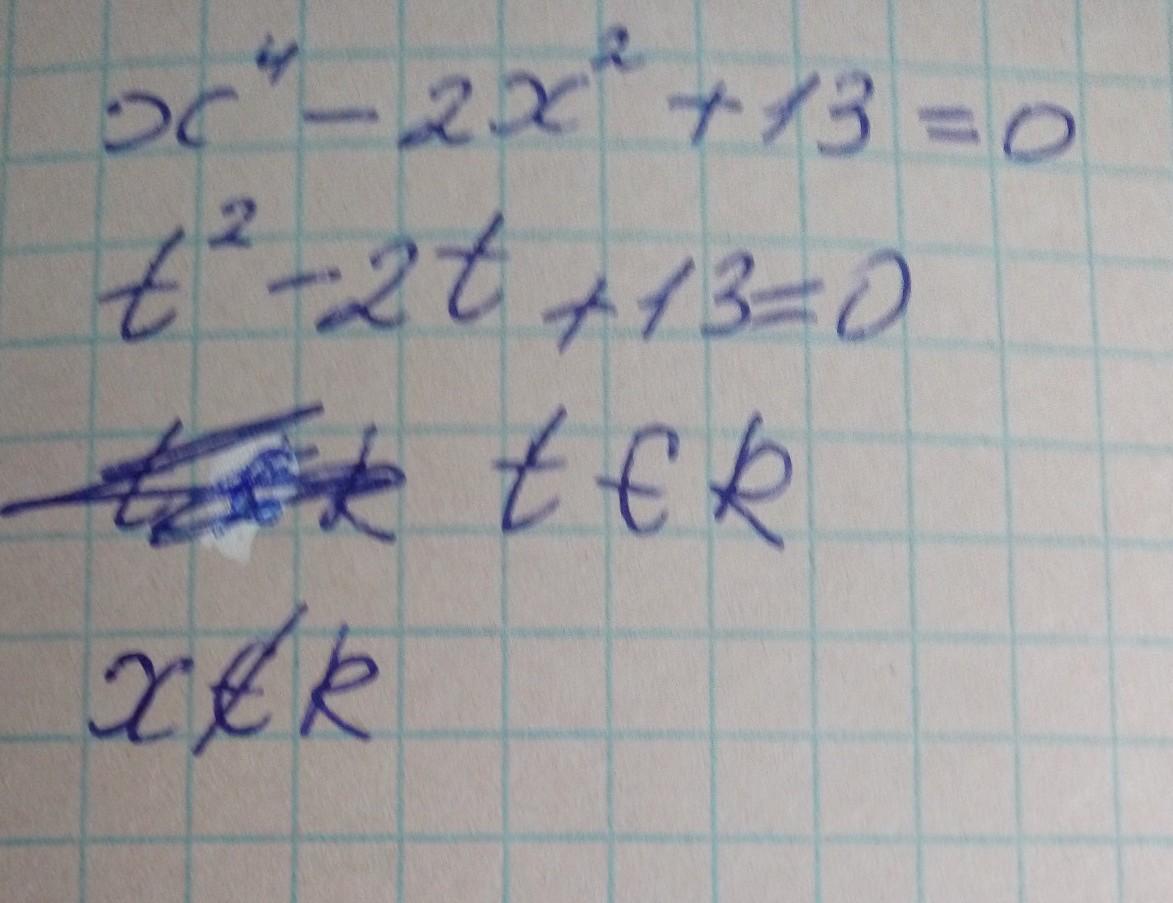 x⁴ - 2x² + 13 = 0
t² - 2t + 13 = 0
t ∈ R
x ∉ R